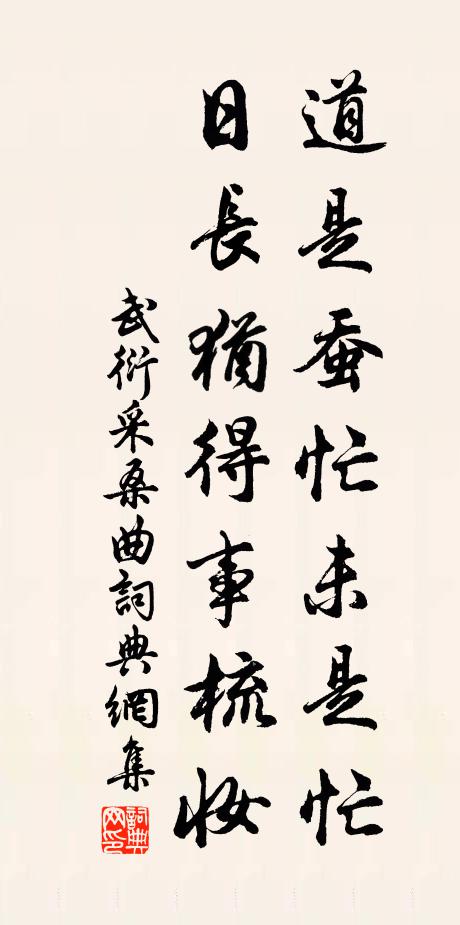 道是蚕忙未是忙
日長猶得事梳妆
武衍采桑曲詞典網集
詞典网印